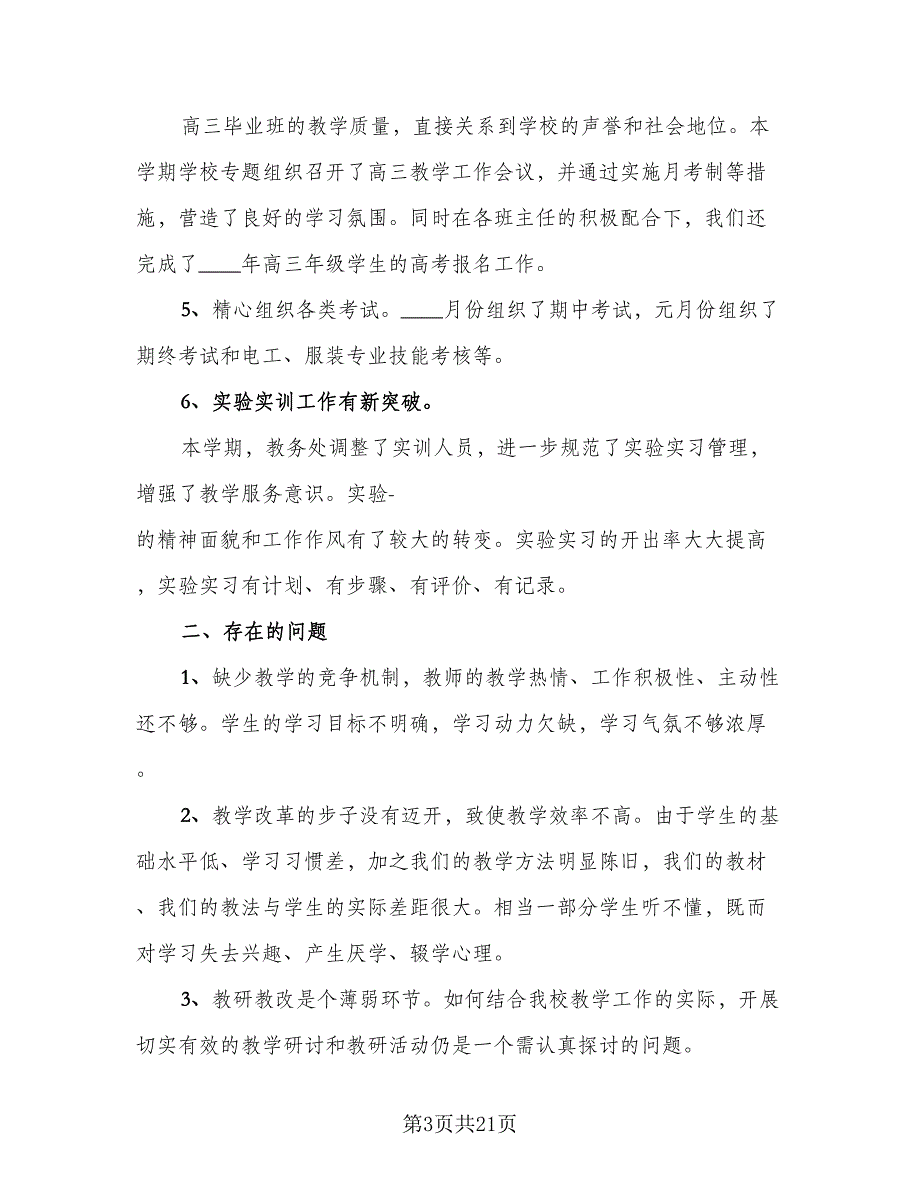 高三毕业班的教学质量，直接关系到学校的声誉和社会地位。本
学期学校专题组织召开了高三教学工作会议，并通过实施月考制等措
施，营造了良好的学习氛围。同时在各班主任的积极配合下，我们还
完成了____年高三年级学生的高考报名工作。
5、精心组织各类考试。____月份组织了期中考试，元月份组织了
期终考试和电工、服装专业技能考核等。
6、实验实训工作有新突破。
本学期，教务处调整了实训人员，进一步规范了实验实习管理，
增强了教学服务意识。实验-
的精神面貌和工作作风有了较大的转变。实验实习的开出率大大提高
，实验实习有计划、有步骤、有评价、有记录。
二、存在的问题
1、缺少教学的竞争机制，教师的教学热情、工作积极性、主动性
还不够。学生的学习目标不明确，学习动力欠缺，学习气氛不够浓厚
。
2、教学改革的步子没有迈开，致使教学效率不高。由于学生的基
础水平低、学习习惯差，加之我们的教学方法明显陈旧，我们的教材
、我们的教法与学生的实际差距很大。相当一部分学生听不懂，既而
对学习失去兴趣、产生厌学、辍学心理。
3、教研教改是个薄弱环节。如何结合我校教学工作的实际，开展
切实有效的教学研讨和教研活动仍是一个需认真探讨的问题。
第3页共21页